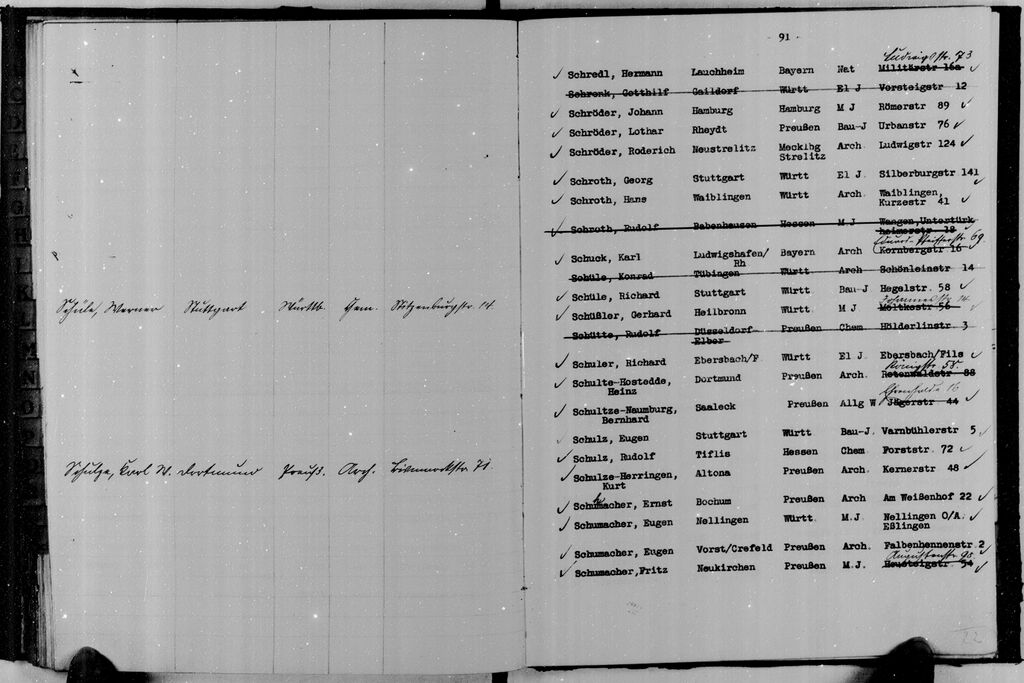 Schüle, Werner Stuttgart Württb. Chem. Stitzenburgstr. 14
Schulze, Karl W. Dortmund Preuß. Arch. Bismarckstr. 71
- 91 -
Ludwigstr. 73
Schredl, Hermann Lauchheim Bayern Nat Militärstr 16a
Schronk, Gotthilf Gaildorf Württ El J Versteigstr 12
Schröder, Johann Hamburg Hamburg M J Römerstr 89
Schröder, Lothar Rheydt Preußen Bau-J Urbanstr 76
Schröder, Roderich Neustrelitz Mecklbg Arch. Ludwigstr 124
Strelitz
Schroth, Georg Stuttgart Württ El J. Silberburgstr 141
Schroth, Hans Waiblingen Württ Arch. Waiblingen,
Kurzestr 41
Schroth, Rudolf Babenhausen Hessen M J Wangen,Untertürk
heimerstr 18
Eduard-Pfeifferstr 69
Schuck, Karl Ludwigshafen/ Bayern Arch Kornbergstr 16
Rh
Schüle, Konrad Tübingen Württ Arch Schönleinstr 14
Schüle, Richard Stuttgart Württ Bau-J Hegelstr. 58
Johannesstr 14
Schüßler, Gerhard Heilbronn Württ M J Moltkestr 56
Schütte, Rudolf Düsseldorf Preußen Chem. Hölderlinstr 3
Elber
Schuler, Richard Ebersbach/F. Württ El J. Ebersbach/Fils
Königstr 58.
Schulte-Hostedde, Dortmund Preußen Arch. Rotenwaldstr 88
Heinz
Ehrenhalde 16
Schultze-Naumburg, Saaleck Preußen Allg W Jägerstr 44
Bernhard
Schulz, Eugen Stuttgart Württ Bau-J. Varnbühlerstr 5
Schulz, Rudolf Tiflis Hessen Chem. Forststr. 72
Schulze-Herringen, Altona Preußen Arch. Kernerstr 48
Kurt
Schumacher, Ernst Bochum Preußen Arch Am Weißenhof 22
Schumacher, Eugen Nellingen Württ. M.J. Nellingen O/A.
Eßlingen
Schumacher, Eugen Vorst/Crefeld Preußen Arch. Falbenhennenstr.2
Augustenstr 90
Schumacher,Fritz Neukirchen Preußen M.J. Heusteigstr 54
22